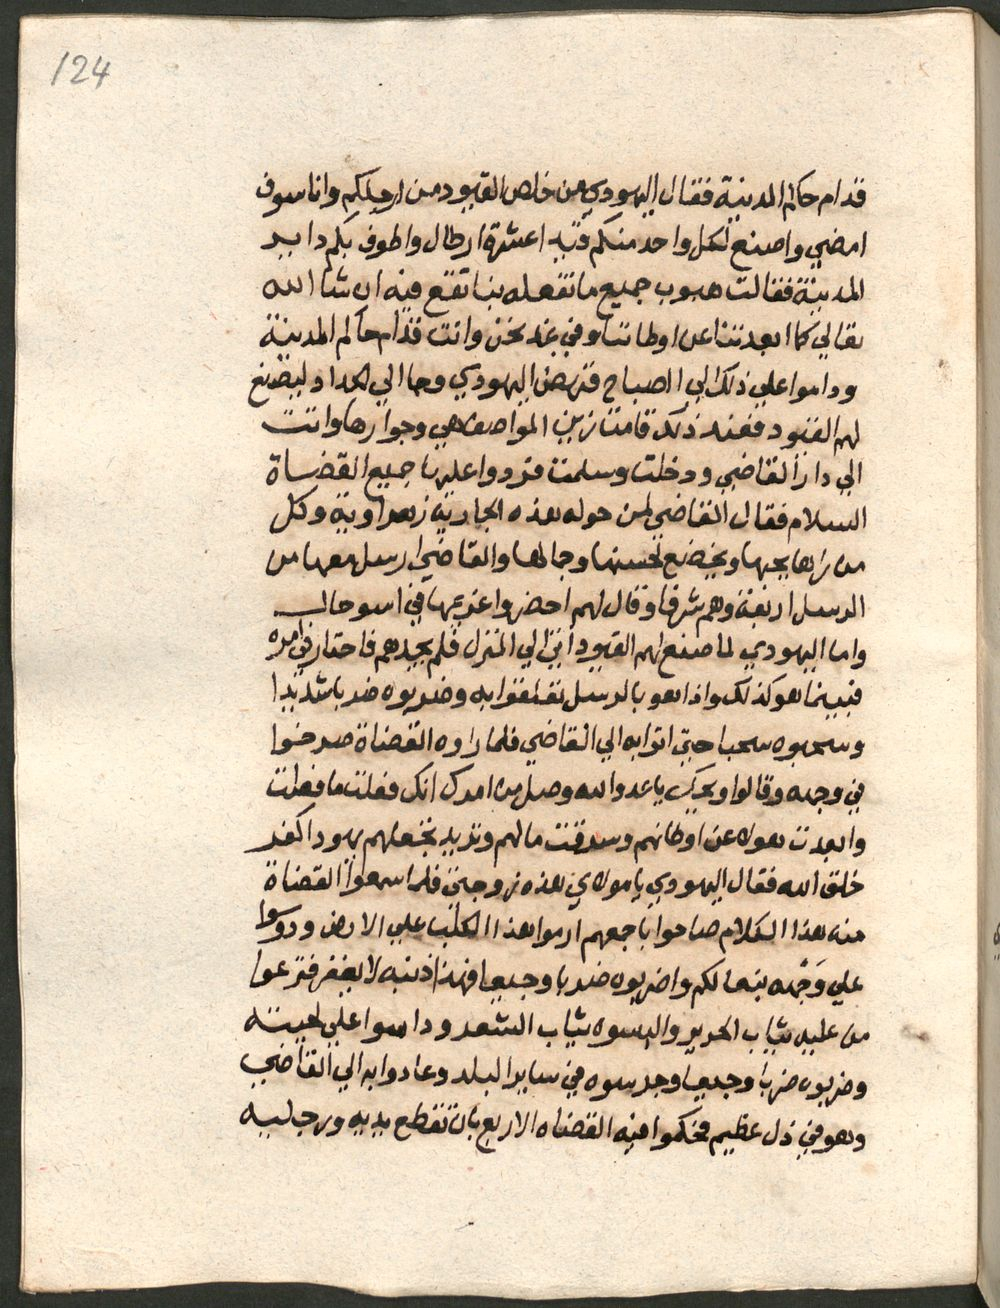 124
قدام حاكم المدينة فقال اليهودي من خلص القيود من ارجلكم وانا سوف
امضي واصنع لكل واحد منكم قيد اعشرة ارطال واطوف بكم داير
المدينة فقالت هبوب جميع ما تفعله بنا تقع فيه ان شا الله
تعالي كما ابعدتنا عن اوطاننا وفي غد نحن وانت قدام حاكم المدينة
وداموا علي ذلك الي الصباح فنهض اليهودي وجا الي الحداد ليصنع
لهم القيود فعند ذلك قامت زين المواصف هي وجوارها واتت
الي دار القاضي ودخلت وسلمت فردوا عليها جميع القضاة
السلام فقال القاضي لمن حوله هذه الجارية زهراوية وكل
من راها يحبها ويخضع لحسنها وجمالها والقاضي ارسل معها من
الرسل اربعة وهم شرفا وقال لهم احضروا غريمها في اسو حال
واما اليهودي لما صنع لهم القيود اتي الي المنزل فلم يجدهم فاحتار في امره
فبينما هو كذلك واذا هو بالرسل تعلقوا به وضربوه ضربا شديدا
وسحبوه سحبا حتي اتوا به الي القاضي فلما راوه القضاة صرخوا
في وجهه وقالوا ويحك يا عدو الله وصل من امرك انك فعلت ما فعلت
وابعدت هولا عن اوطانهم وسرقت مالهم وتريد تجعلهم يهود اكفر
خلق الله فقال اليهودي يا مولاي هذه زوجتي فلما سمعوا القضاة
منه هذا الكلام صاحوا باجمعهم ارموا هذا الكلب علي الارض ودوسوا
علي وجهه بنعالكم واضربوه ضربا وجيعا فهذا ذنبه لا يغفر فنزعوا
من عليه ثياب الحرير والبسوه ثياب الشعر وداسوا علي لحيته
وضربوه ضربا وجيعا وجرسوه في ساير البلد وعادوا به الي القاضي
وهو في ذل عظيم فحكموا فيه القضاه الاربع بان تقطع يديه ورجليه